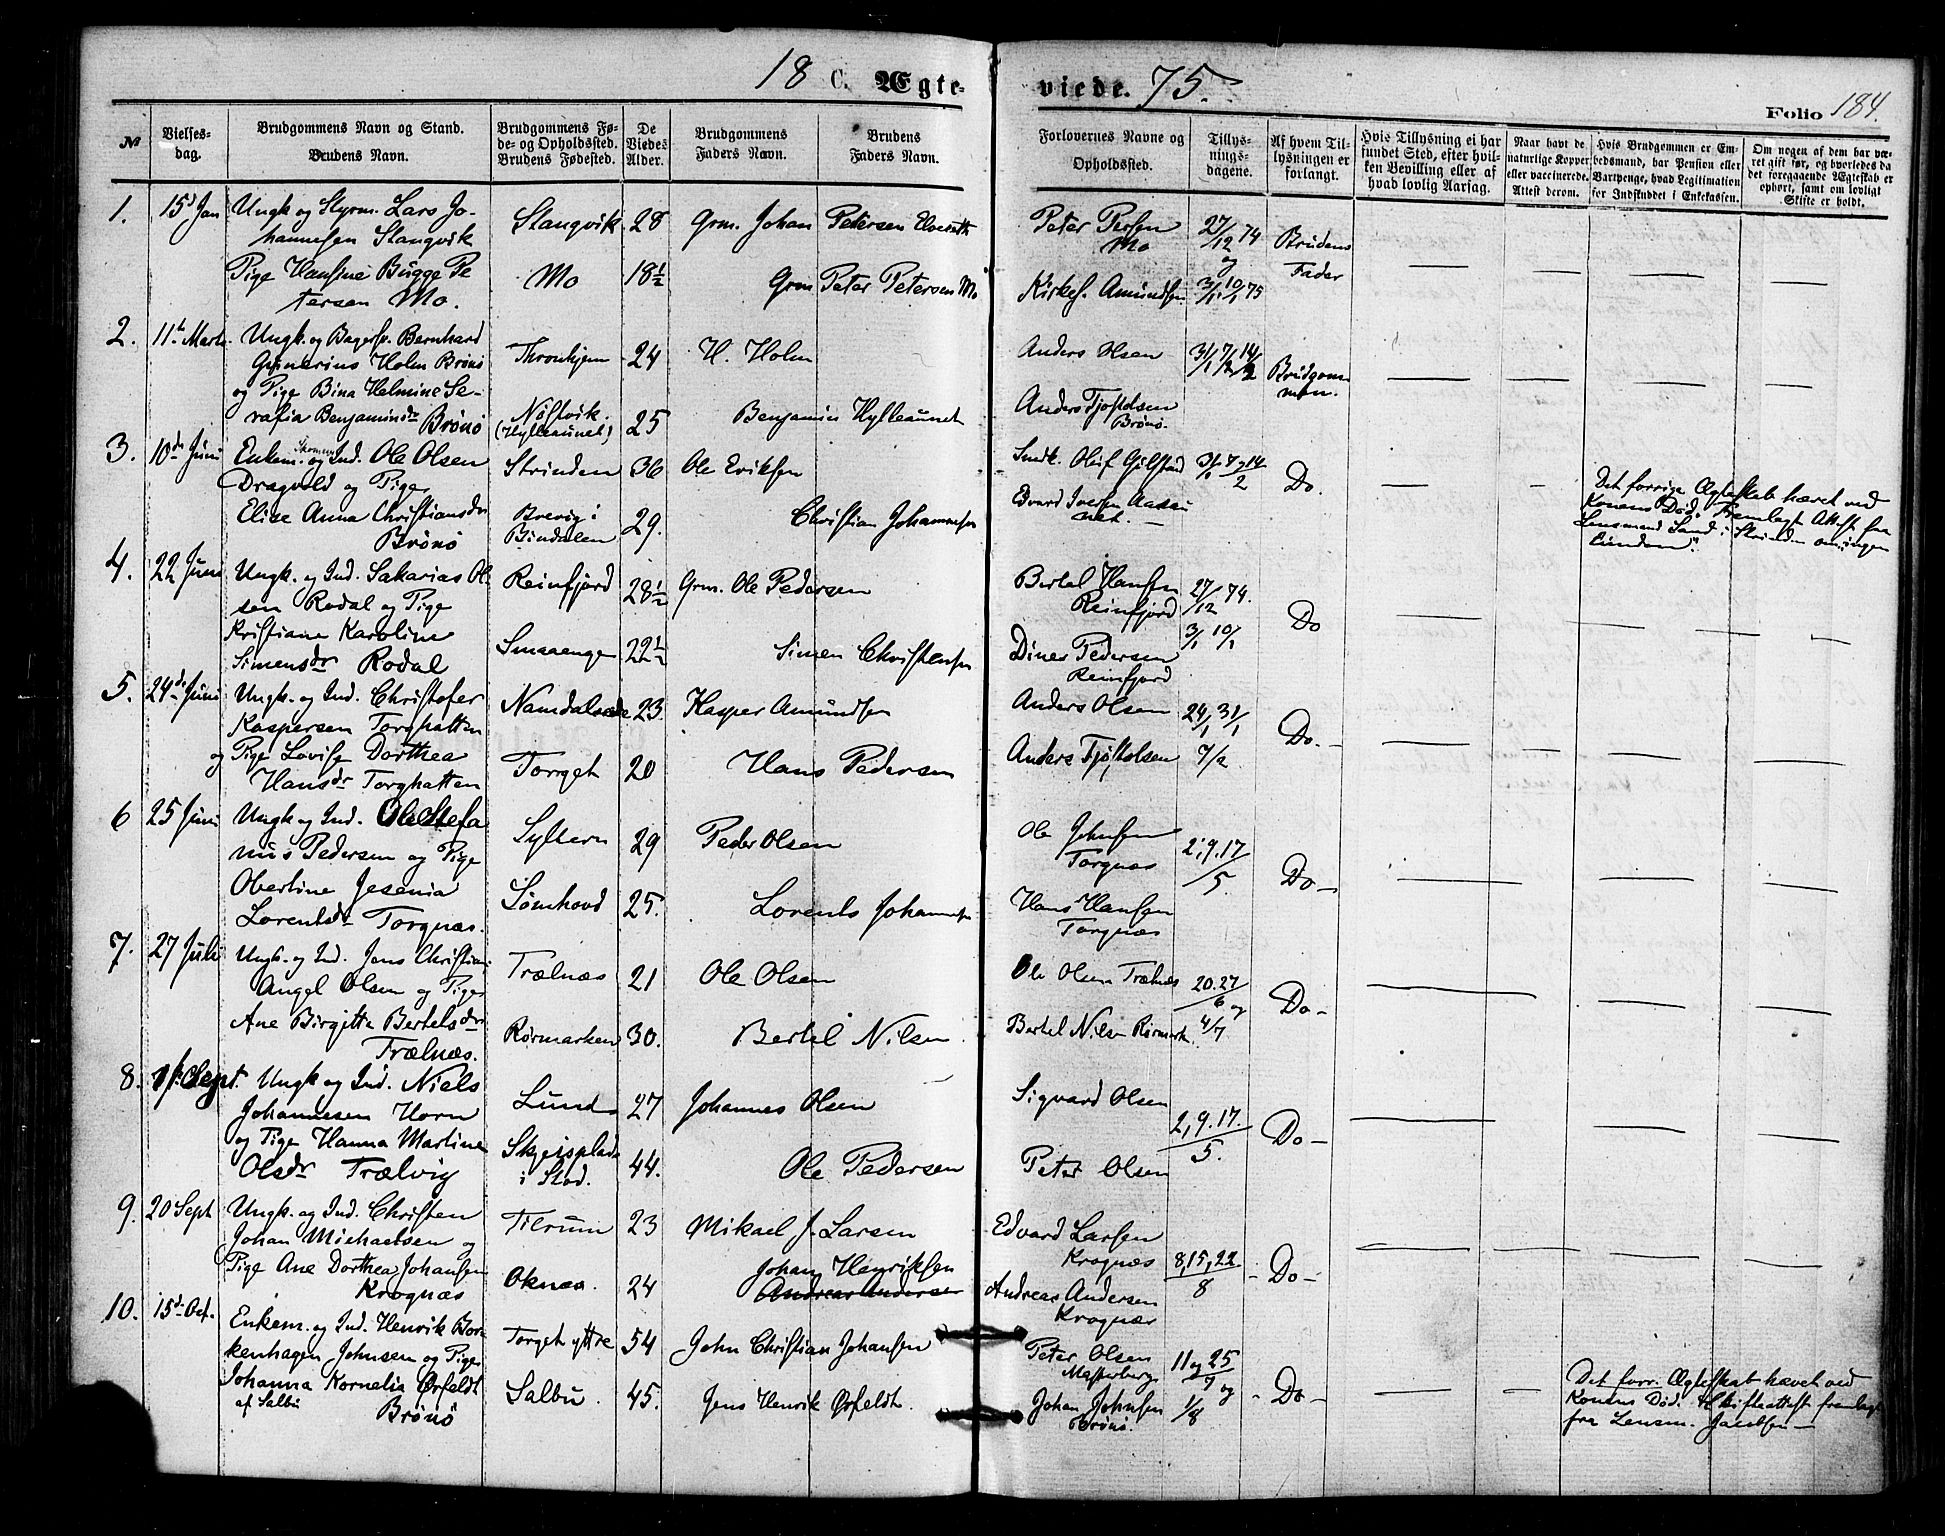 18 C. Ægte-
viede. 75.
Folio 184.
№
Vielses-
dag.
Brudgommens Navn og Stand.
Brudens Navn.
Brudgommens Fø-
de- og Opholdssted.
Brudens Fødested.
De
Viedes
Alder.
Brudgommens
Faders Navn.
Brudens
Faders Navn.
Forlovernes Navne og
Opholdssted.
Tillys-
nings-
dagene.
Af hvem Til-
lysningen er
forlangt.
Hvis Tillysning ei har
fundet Sted, efter hvil-
ken Bevilling eller af
hvad lovlig Aarsag.
Naar havt de
naturlige Kopper
eller vaccinerede.
Attest derom.
Hvis Brudgommen er Em-
bedsmand, har Pension eller
Vartpenge, hvad Legitimation
for Indskuddet i Enkekassen.
Om nogen af dem har væ-
ret gift før, og hvorledes da
det foregaaende Ægteskab er
ophørt, samt om lovligt
Skifte er holdt.
1. 15d Jan
Ungk og Styrm. Lars Jo-
hannesen Stangvik
Stangvik 28
Grm. Johan Petersen
Pige Hansine Bugge Pe
tersen Mo.
Mo 18½
Grm Peter Petersen Mo
Peter Persen
Mo
Kirkes. Amundsen
27/12 74
og
3/1 10/1 75
Brudens
Fader
2. 11t Marts
Ungk. og Bagersv. Bernhard
Gunerius Holm Brönö
og Pige Bina Helmine Se-
rafia Benjaminsdr Brönö
Thronhjem 24
H. Holm
Nöstvik.
(Hylleaunet) 25
Benjamin Hylleaunet
Anders Olsen
Anders Tjostolsen
Brönö.
31/1 7/2 14/2
Brudgom-
men.
3. 10de Juni
Enkem. og Ind. Ole Olsen
Dragvold og Pige
Elise Anna Christiansdr
Brönö
Strinden 36
Ole Eriksen
Brevig i
Bindalen 29.
Christian Johannesen
Smdk. Oluf Gilstad
Edvard Iversen Aasau
net.
31/1 7 og 14/2
Do.
Det forrige Ægteskab hævet ved
Konens Död. Fremlagt Attest fra
Lensmand Sand i Strinden om ingen
4. 22 Juni
Ungk. og Ind. Sakarias Ol
sen Rodal og Pige
Kristiane Karoline
Simensdr Rodal
Reinfjord 28½
Grm. Ole Pedersen
Smaaenge 22½
Simen Christensen
Bertel Hansen
Reinfjord
Diner Pedersen
Reinfjord
27/12 74.
3/1 10/1
Do
5. 24de Juni
Ungk. og Ind. Christofer
Kaspersen Torghatten
og Pige Lovise Dorthea
Hansdr Torghatten
Namdalseide 23.
Kasper Amundsen
Torget 20
Hans Pedersen
Anders Olsen
Anders Tjöstolsen
24/1 31/1
7/2
Do.-
6 25 Juni
Ungk og Ind. Ole Stefa
nus Pedersen og Pige
Obertine Jesenia
Lorentsdr Torgnæs.
Syltern 29
Peder Olsen
Sömhovd 25.
Lorents Johannesen
Ole Johnsen
Torgnæs
Hans Hansen
Torgnæs
2,9.17/5
Do-
7. 27 Juli
Ungk. og Ind. Jens Christian
Angel Olsen og Pige
Ane Birgitta Bertelsdr
Trælnæs.
Trælnæs 21
Ole Olsen
Rörmarken 30.
Bertel Nilsen
Ole Olsen Trælnæs
Bertel Nilsen Rörmark
20.27/6 og
4/7
Do-
8. Sept.
Ungk og Ind. Niels
Johannesen Horn
og Pige Hanna Martine
Olsdr Trælvig
Lund 27
Johannes Olsen
Skjeisplads
i Stod. 44.
Ole Pedersen
Sigvard Olsen
Peter Olsen
2,9.17./5.
Do-
9. 20 Sept
Ungk. og Ind. Christen
Johan Michaelsen og
Pige Ane Dorthea Johansen
Krognæs
Tilrum 23
Mikael J. Larsen
Oknæs. 24
Johan Henriksen
Andreas Andersen
Edvard Larsen
Krognæs
Andreas Andersen
Krognæs
8,15,22/8
-Do-
10. 15de Oct.
Enkem. og Ind. Henrik Bor-
kenhagen Johnsen og Pige
Johanna Kornelia Örfeldt
af Salbu Brönö
Torget yttre 54
John Christian Johansen
Salbu. 45.
Jens Henrik Örfeldt.
Peter Olsen
Johan Johnsen
Brönö.
11 og 25/7 og
1/8
-Do-
Det forr. Ægteskab hævet ved
Konens Död. Skifteattest fremlagt
fra Lensm. Jacobsen-